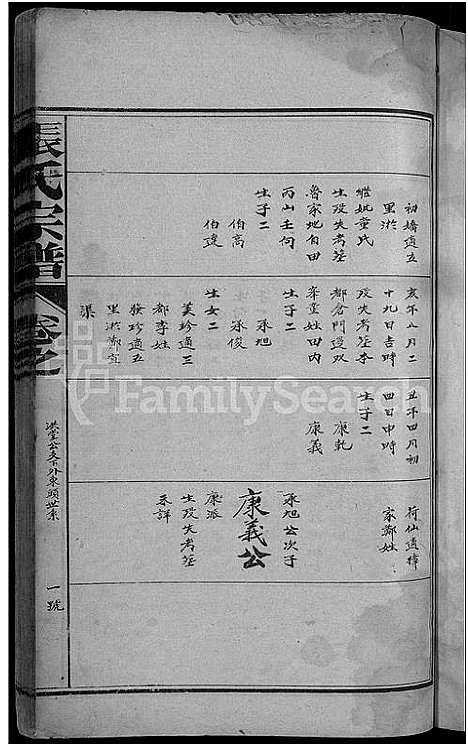 初嬌適五
里淤
繼妣童氏
生歿失考塟
魯家地自田
丙山壬向
生子二
伯高
伯達
亥年八月二
十九日吉時
歿失考塟李
都倉門邊双
峯堂姓田内
生子二
承旭
承俊
生女二
美珍適三
都李姓
發珍適五
里淤鄭宣
渠
丑年四月初
四日申時
生子二
康乾
康義
荷仙適樟
家鄭姓
承旭公次子
康義公
康派
生歿失考塟
未詳
張氏宗譜
卷之
洪堂公支下外東頭世系
一號
FamilySearch